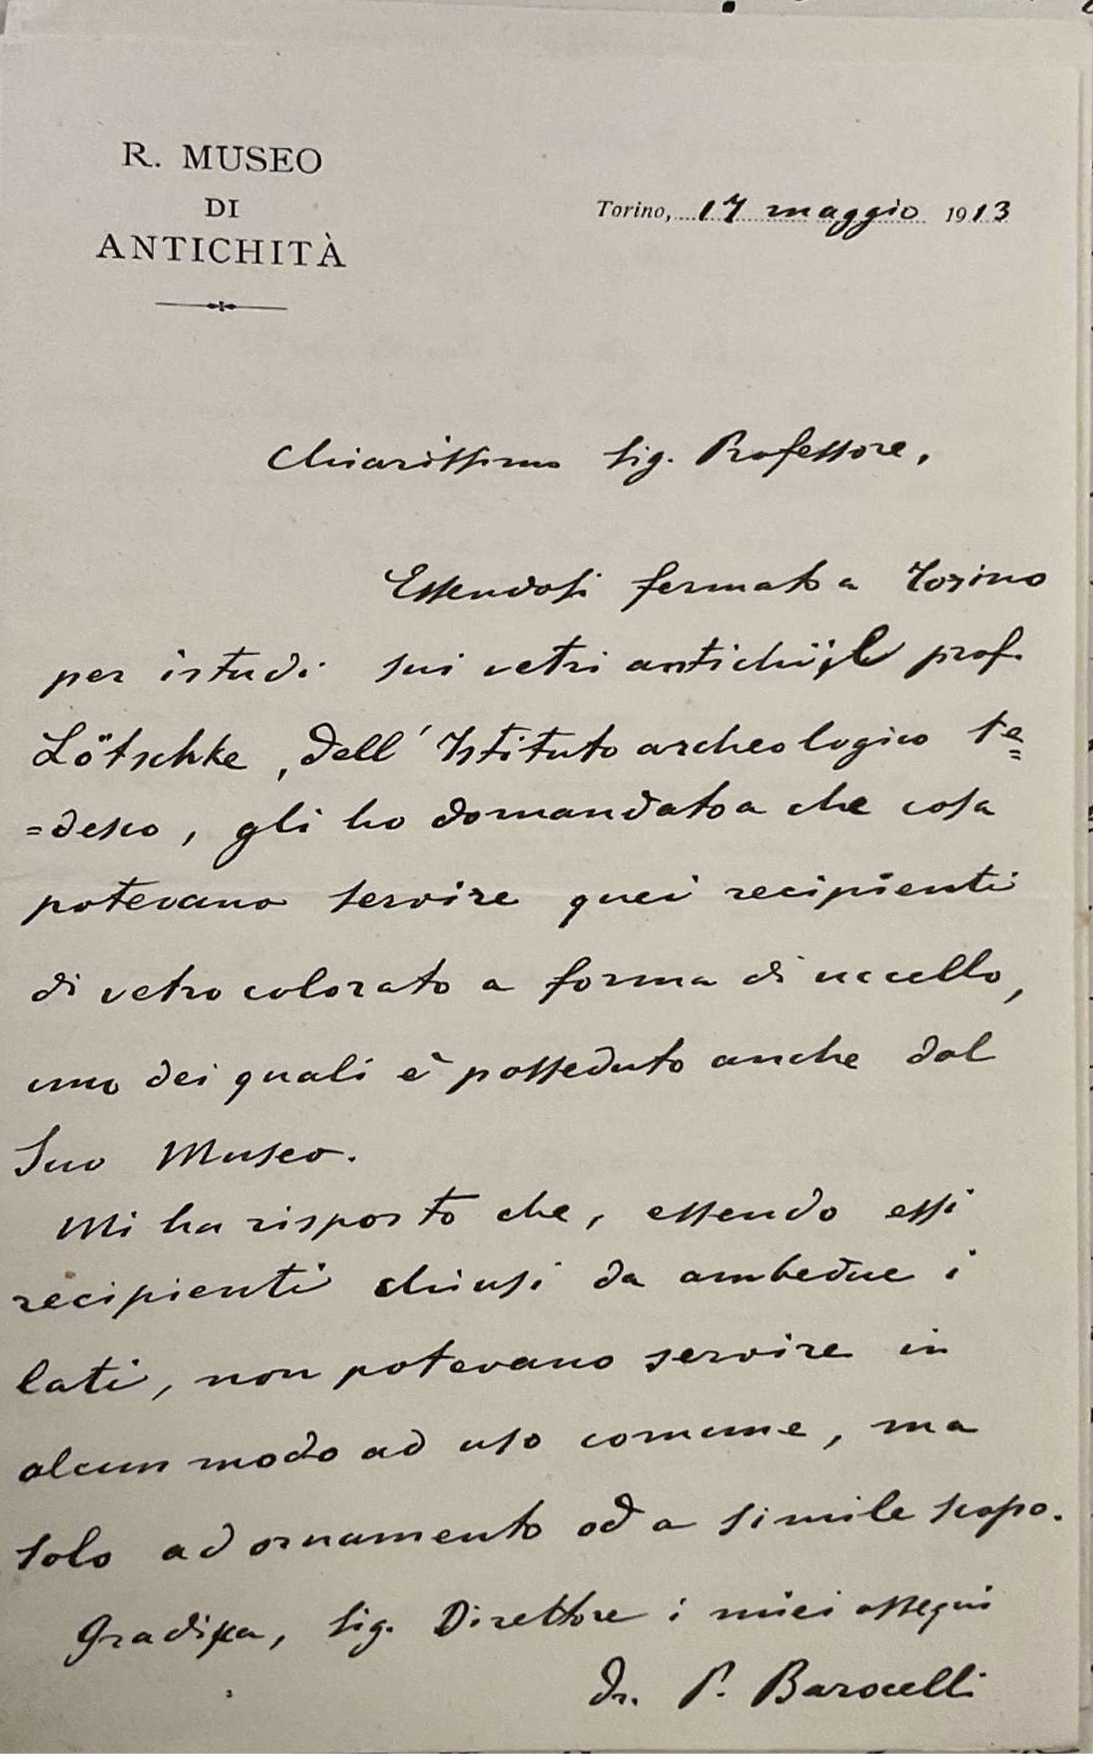 R. MUSEO
DI
ANTICHITÀ
Torino, 17 maggio 1913
Chiarissimo Sig. Professore,
Essendosi fermato a Torino
per istudi sui vetri antichi il prof.
Lötschke, dell'Istituto archeologico te=
=desco, gli ho domandato a che cosa
potevano servire quei recipienti
di vetro colorato a forma di uccello,
uno dei quali è posseduto anche dal
Suo Museo.
Mi ha risposto che, essendo essi
recipienti chiusi da ambedue i
lati, non potevano servire in
alcun modo ad uso comune, ma
solo ad ornamento od a simile scopo.
Gradisca, Sig. Direttore i miei ossequi
Dr. P. Barocelli